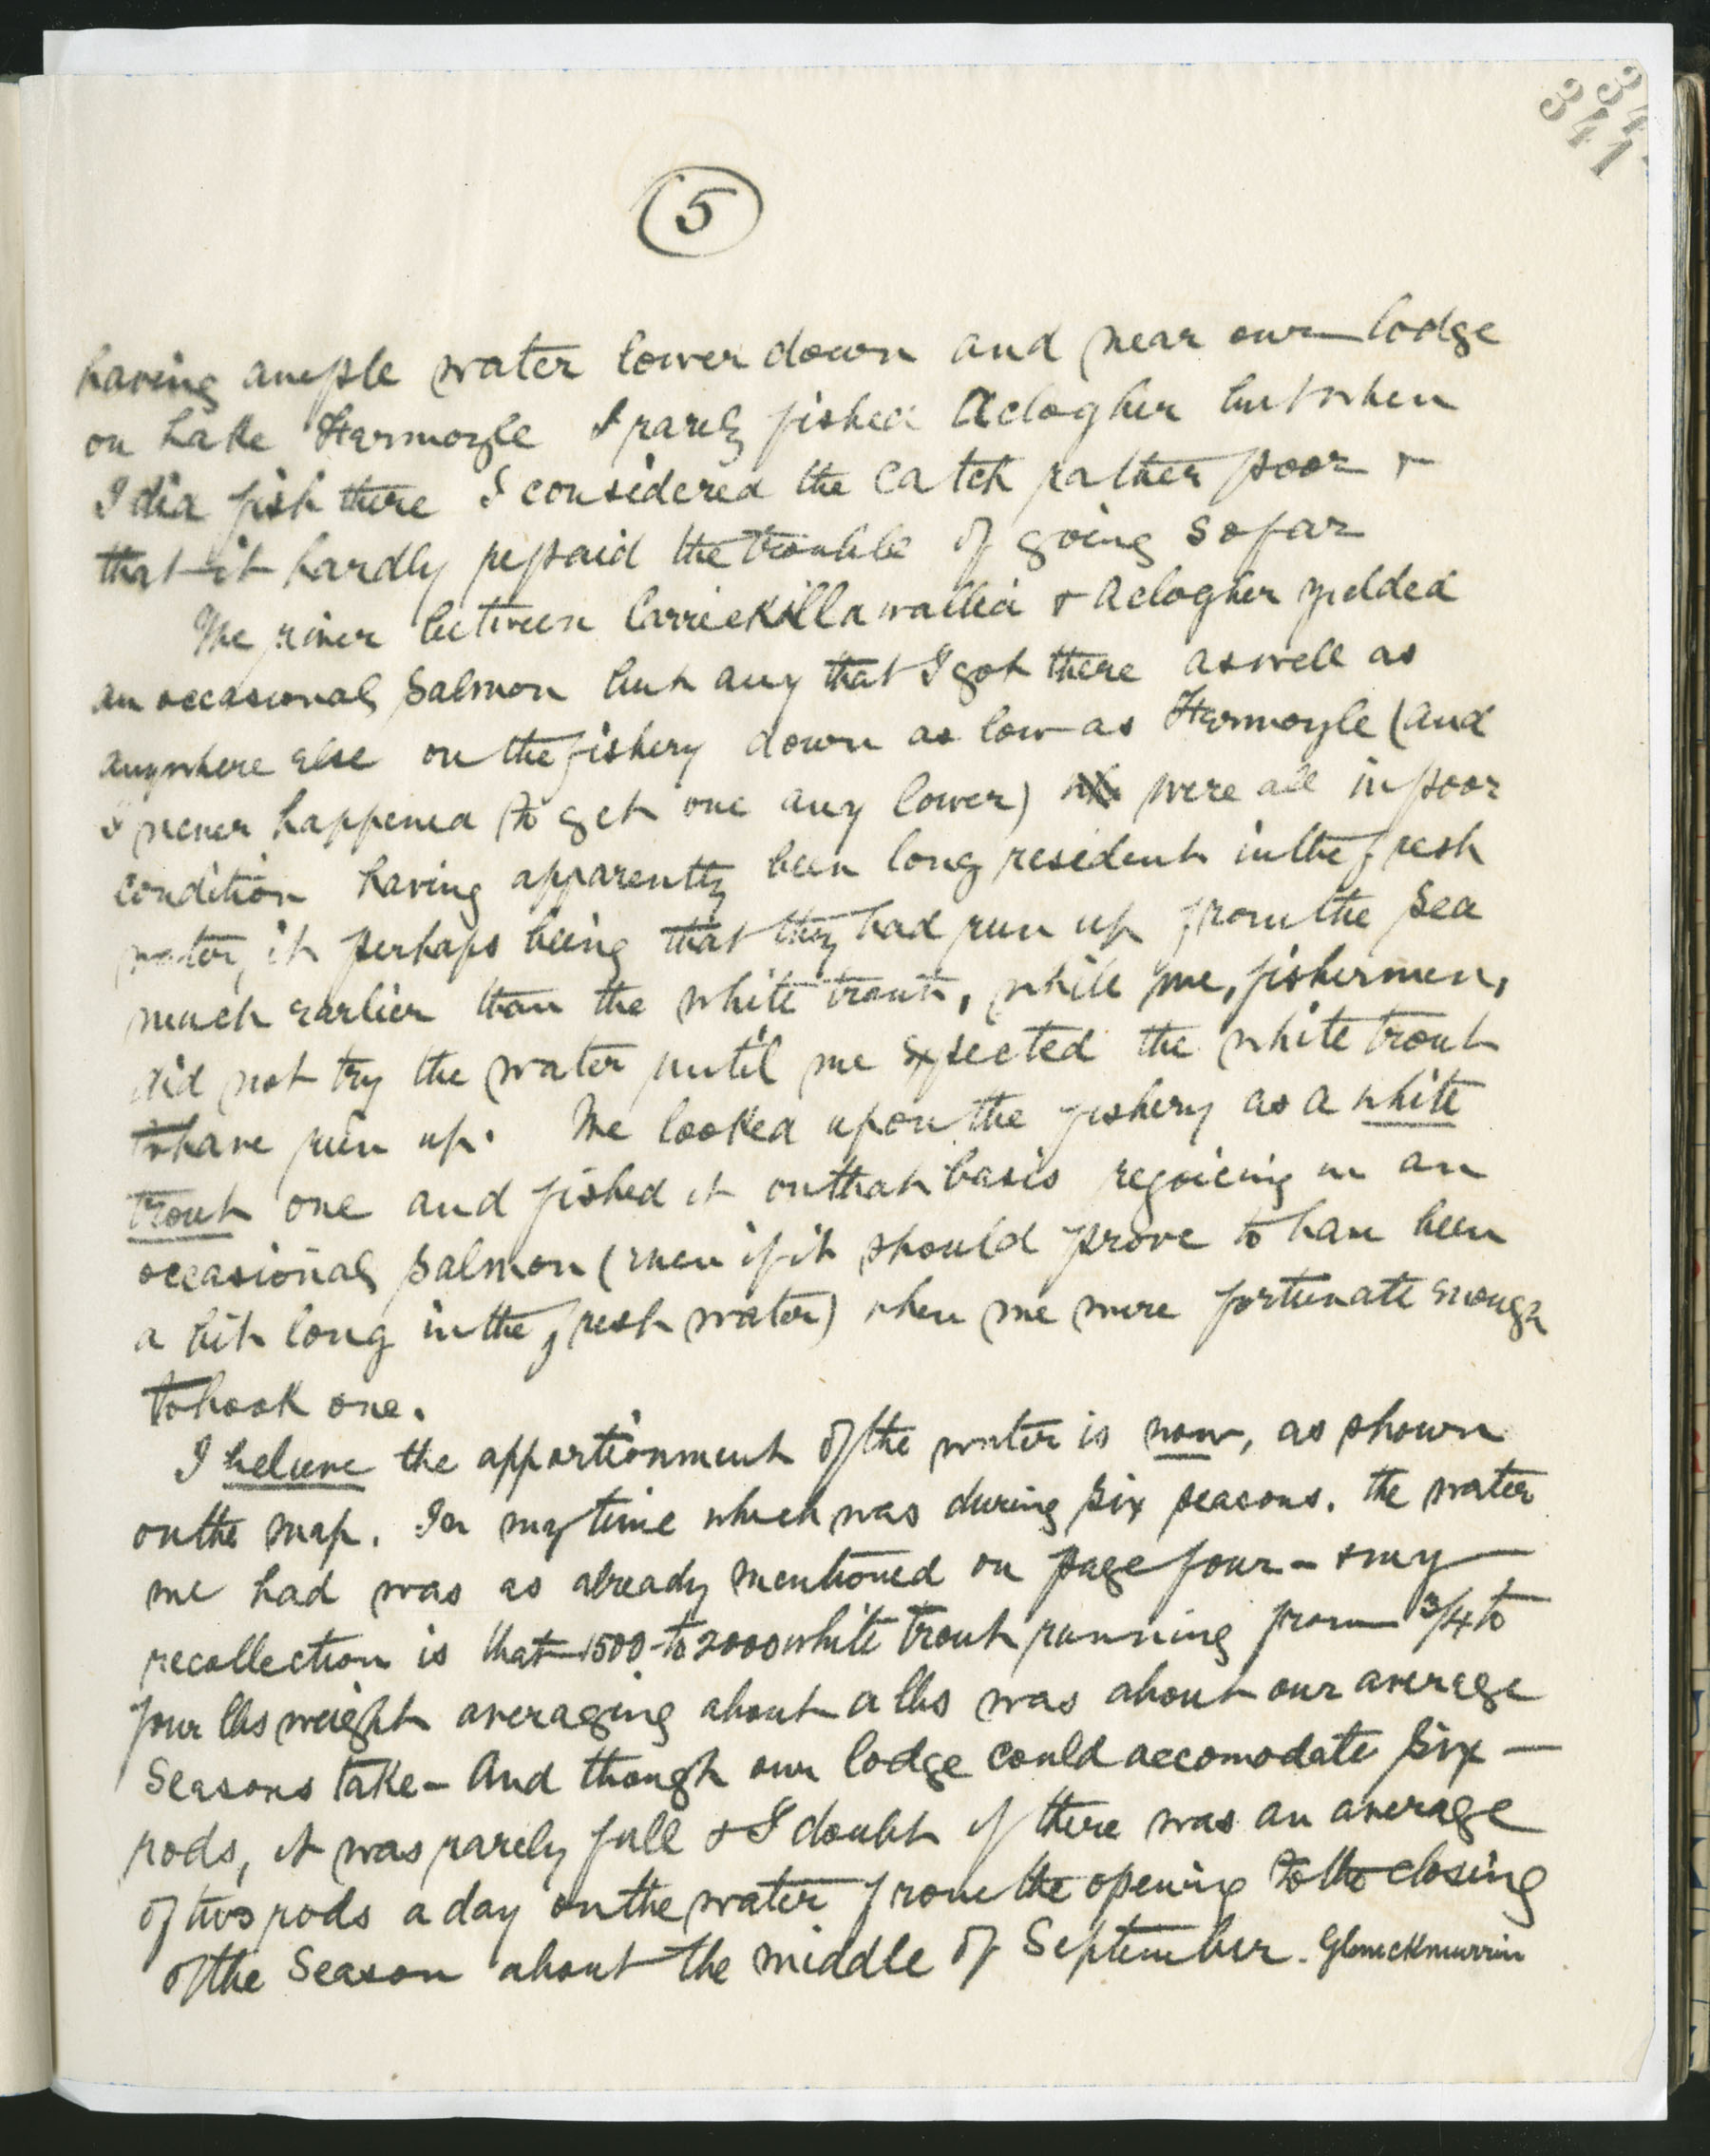 34
341
5
having ample water lower down and near our lodge
on Lake Fermoyle I rarely fished Aclogher but when
I did fish there I considered the catch rather poor &
that it hardly repaid the trouble of going so far
The river between Carrickillawallia & Aclogher yielded
an occasional Salmon but any that I got there as well as
anywhere else on the fishery down as low as Fermoyle (and
I never happened to get one any lower) were all in poor
condition having apparently been long resident in the fresh
water, it perhaps being that they had run up from the sea
much earlier than the white trout, while we, fishermen,
did not try the water until we expected the white trout
to have run up. We looked upon the fishery as a white
trout one and fished it on that basis rejoicing in an
occasional salmon (even if it should prove to have been
a bit long in the fresh water) when we were fortunate enough
to hook one.
I believe the apportionment of the water is now, as shown
on the map. In my time which was during six seasons. the water
we had was as already mentioned on page four - & my
recollection is that 1500 to 2000 white trout running from 3/4 to
four lbs weight averaging about a lbs was about our average
Seasons take - And though our lodge could accomodate six
rods, it was rarely full & I doubt if there was an average
of two rods a day on the water from the opening to the closing
of the Season about the middle of September.